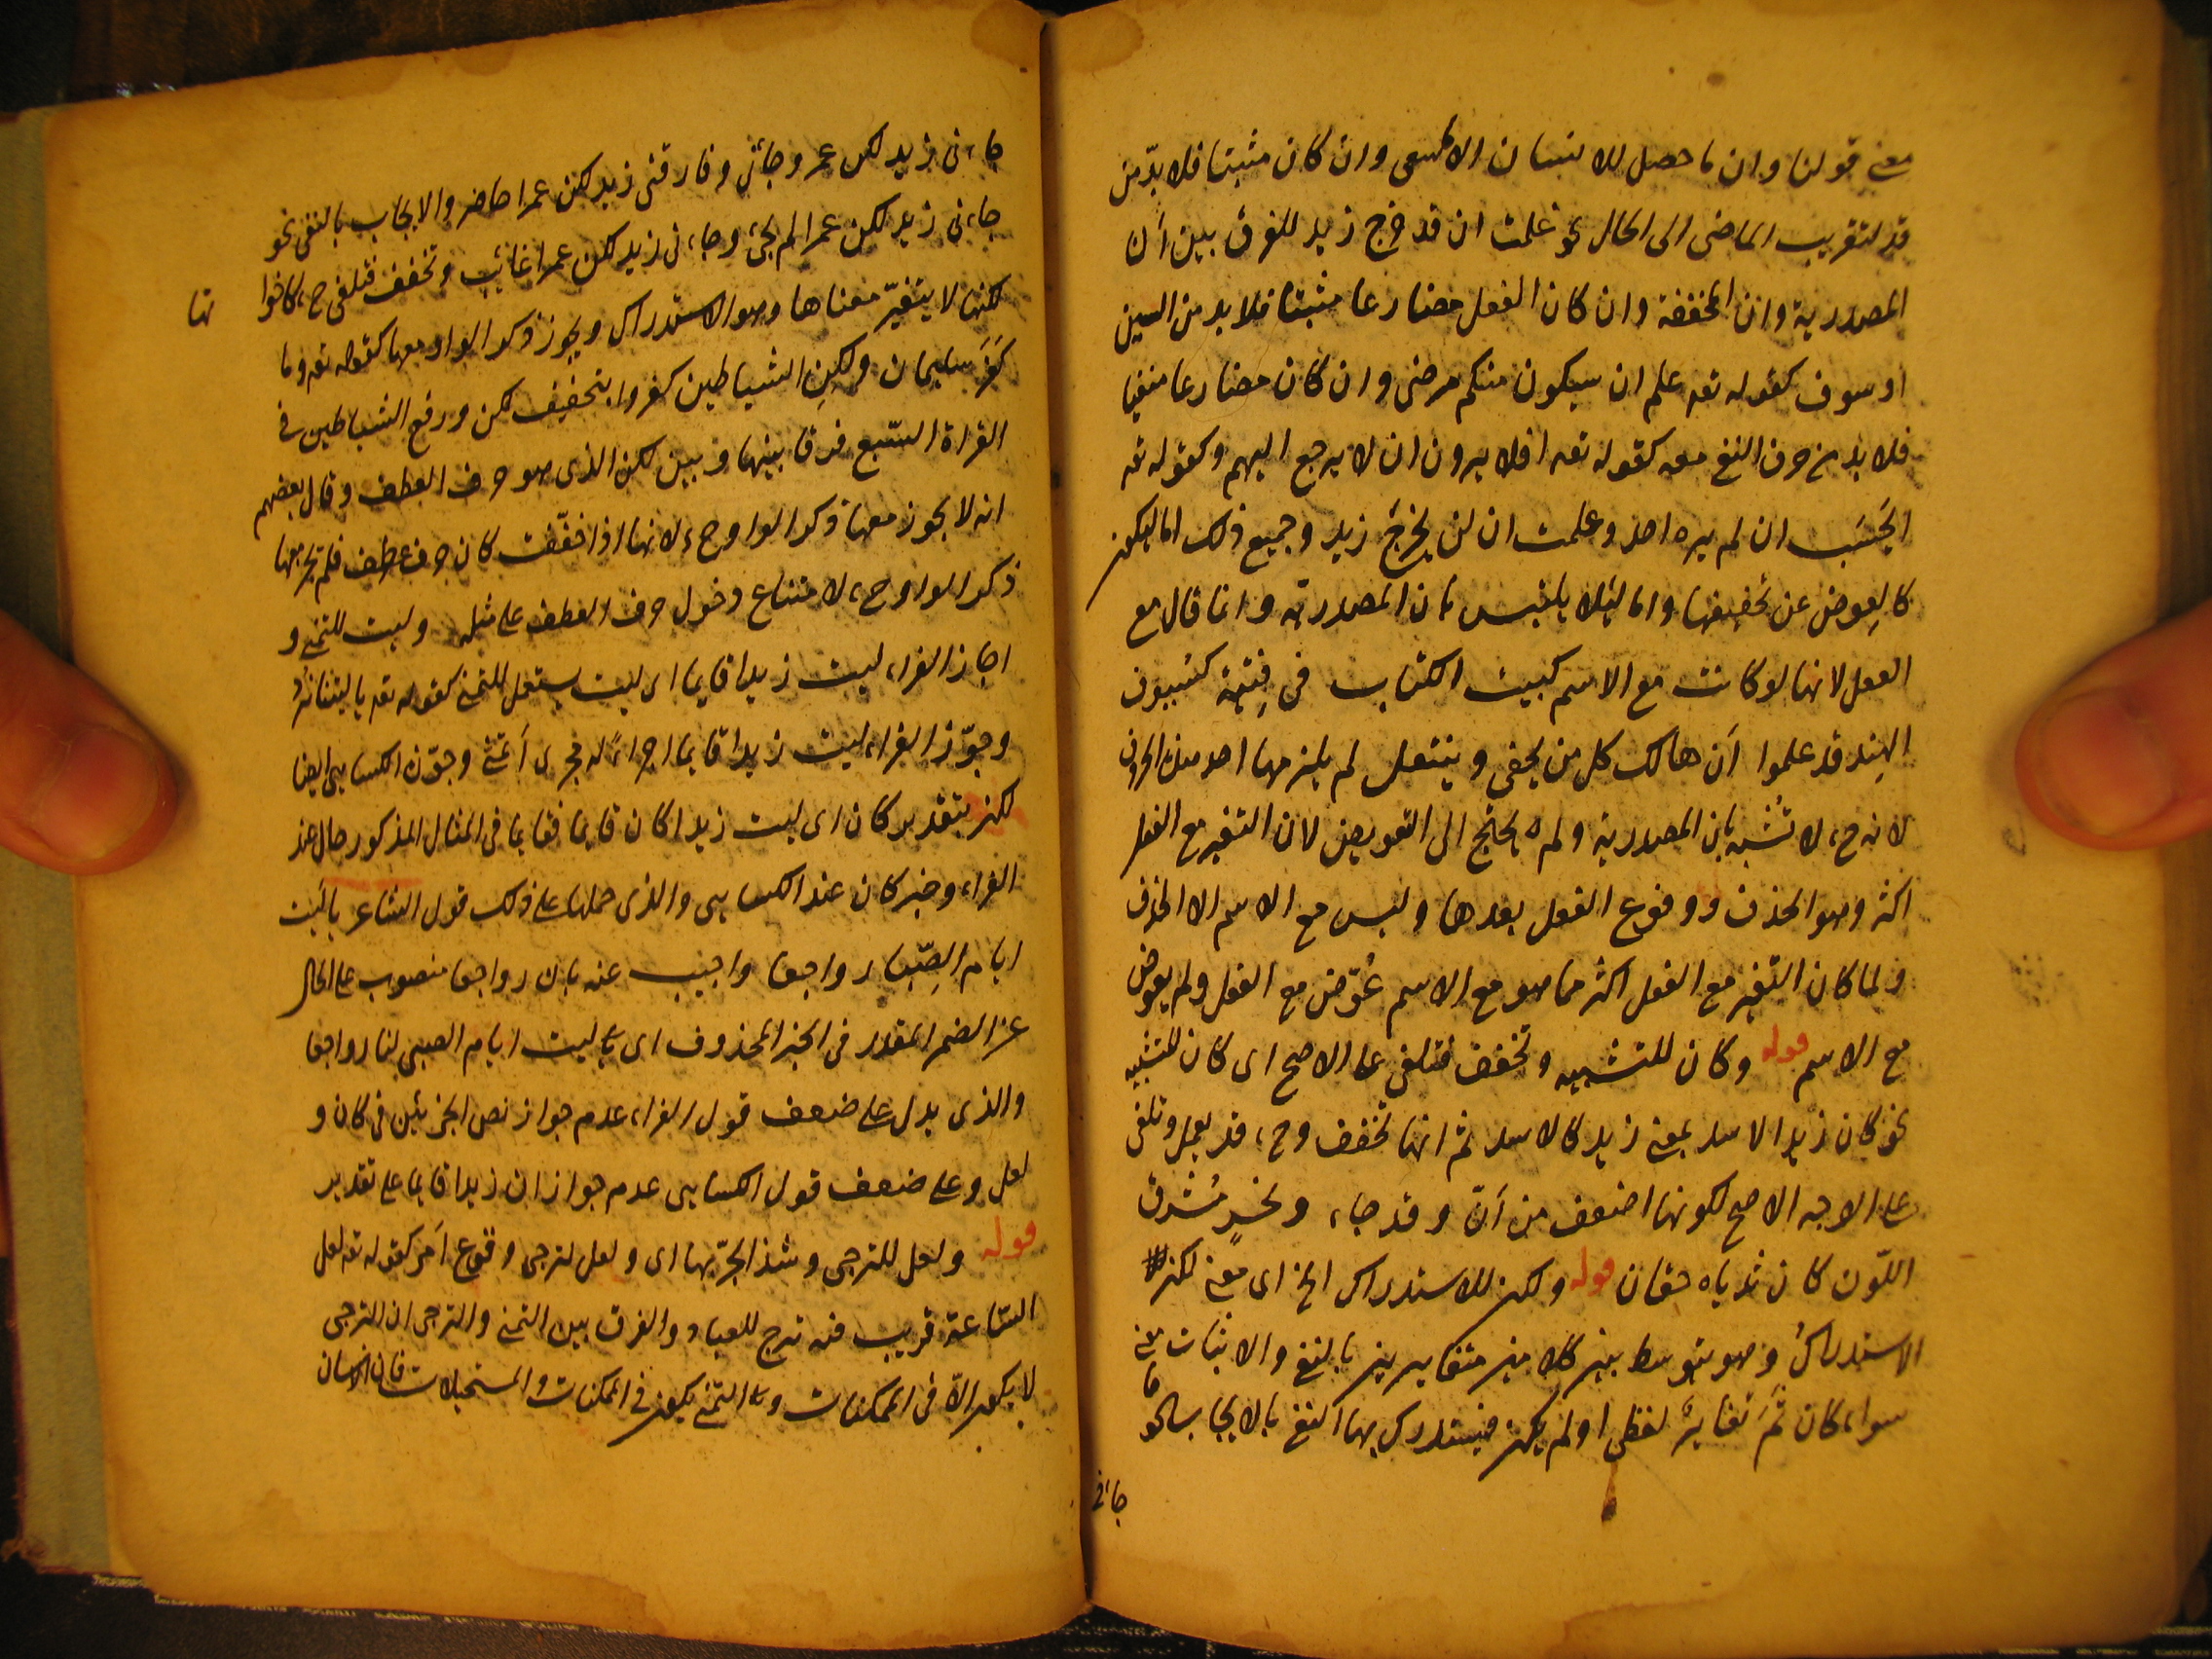 معنى قولنا وان ما حصل للانسان الا ما سعى وان كان مثبتا فلا بدّ من
قد لتقريب الماضى الى الحال نحو علمت ان قد خرج زيد للفرق بين أن
المصدرية وان المخففة وان كان الفعل مضارعا مثبتا فلا بد من السين
او سوف كقوله تعه علم ان سيكون منكم مرضى وان كان مضارعا منفيا
فلا بد من حرف النفى معه كقوله تعه افلا يرون ان لا يرجع اليهم وكقوله تعه
ايحسَب ان لم يره احد وعلمت ان لن يخرجَ زيد وجميع ذلك اما ليكون
كالعِوض عن تخفيفها واما لئلا يلتبس بان المصدرية وانما قال مع
الفعل لانها لو كانت مع الاسم كبيت الكتاب فى فِتية كسُيوف
الهِند قد علموا أن هالك كل من يحفى وينتعل لم يلزمها احد هذه الحروف
لانه ح، لا تشبه بان المصدرية ولم يحتج الى التعويض لان التغير مع الفعل
اكثر وهو الحذف ووقوع الفعل بعدها وليس مع الاسم الا الحذف
ولما كان التغير مع الفعل اكثر مما هو مع الاسم عُوّض مع الفعل ولم يعوض
مع الاسم قوله وكان للتشبيه وتخفف فتلغى على الاصح اى كان للتشبيه
نحو كان زيدا الاسد بمعنى زيد كالاسد ثم انها تخفف وح، قد يعمل وتلغى
على الوجه الاصح لكونها اضعف من أنّ وقد جاء ونحرٍ مُشرق
اللّون كان ثدياه حقان قوله ولكن للاستدراك الخ اى معنى لكن
الاستدراكُ وهو يتوسط بين كلامين متغايرين بالنفى والاثبات معنى
سواء كان ثَمّ تغايرٌ لفظى او لم يكن فيستدرك بها النفى بالايجاب نحو ما
جاءنى
جاءنى زيد لكن عمرو جاءنى وفارقنى زيد لكن عمرا حاضر والايجاب بالنفى نحو
جاءنى زيد لكن عمرا لم يجئ وجاءنى زيد لكن عمرا غائب وتخفف فتلغى ح، كاخواتها
لكنها لا يتغيّر معناها وهو الاستدراك ويجوز ذكر الواو معها كقوله تعه وما
كفَرَ سليمان ولكنِ الشياطين كفروا بتخفيف لكن ورفع الشياطين فى
القراة السّبع فرقا بينها وبين لكن الذى هو حرف العطف وقال بعضهم
انه لا يجوز معها ذكر الواو ح، لانها اذا خفّفت كان حرف عطف فلم يجز معها
ذكر الواو ح، لامتناع دخول حرف العطف على مثله وليت للتمنى و
اجاز الفراء ليت زيدا قايما اى ليت يستعمل للتمنى كقوله تعه ياليتنا نُردّ
وجوّز الفراء ليت زيدا قايما اجراءً له مجرى أتمنى وجوّزه الكسايى ايضا
لكن بتقدير كان اى ليت زيدا كان قايما فقايما فى المثال المذكور حال عند
الفراء وخبر كان عند الكسايى والذى حملها على ذلك قول الشاعر ياليت
ايام الصِّبا رواجعا واجيب عنه بان رواجعا منصوب على الحال
عن الضمير المقدر فى الخبر المحذوف اى يا ليت ايام الصبى لنا رواجعا
والذى يدل على ضعف قول الفراء عدم جواز نصب الجزئين فى كان و
لعل وعلى ضعف قول الكسايى عدم جواز ان زيدا قايما على تقدير
قوله ولعل للترجى وشذ الجرّ بها اى ولعل لترجى وقوع أمر كقوله تعه لعل
السّاعة قريب فنه ترج للعباد والفرق بين التمنى والترجى ان الترجى
لا يكون الّا فى الممكنات والتمنى يكون فى الممكنات والمستحيلات فان الانسان